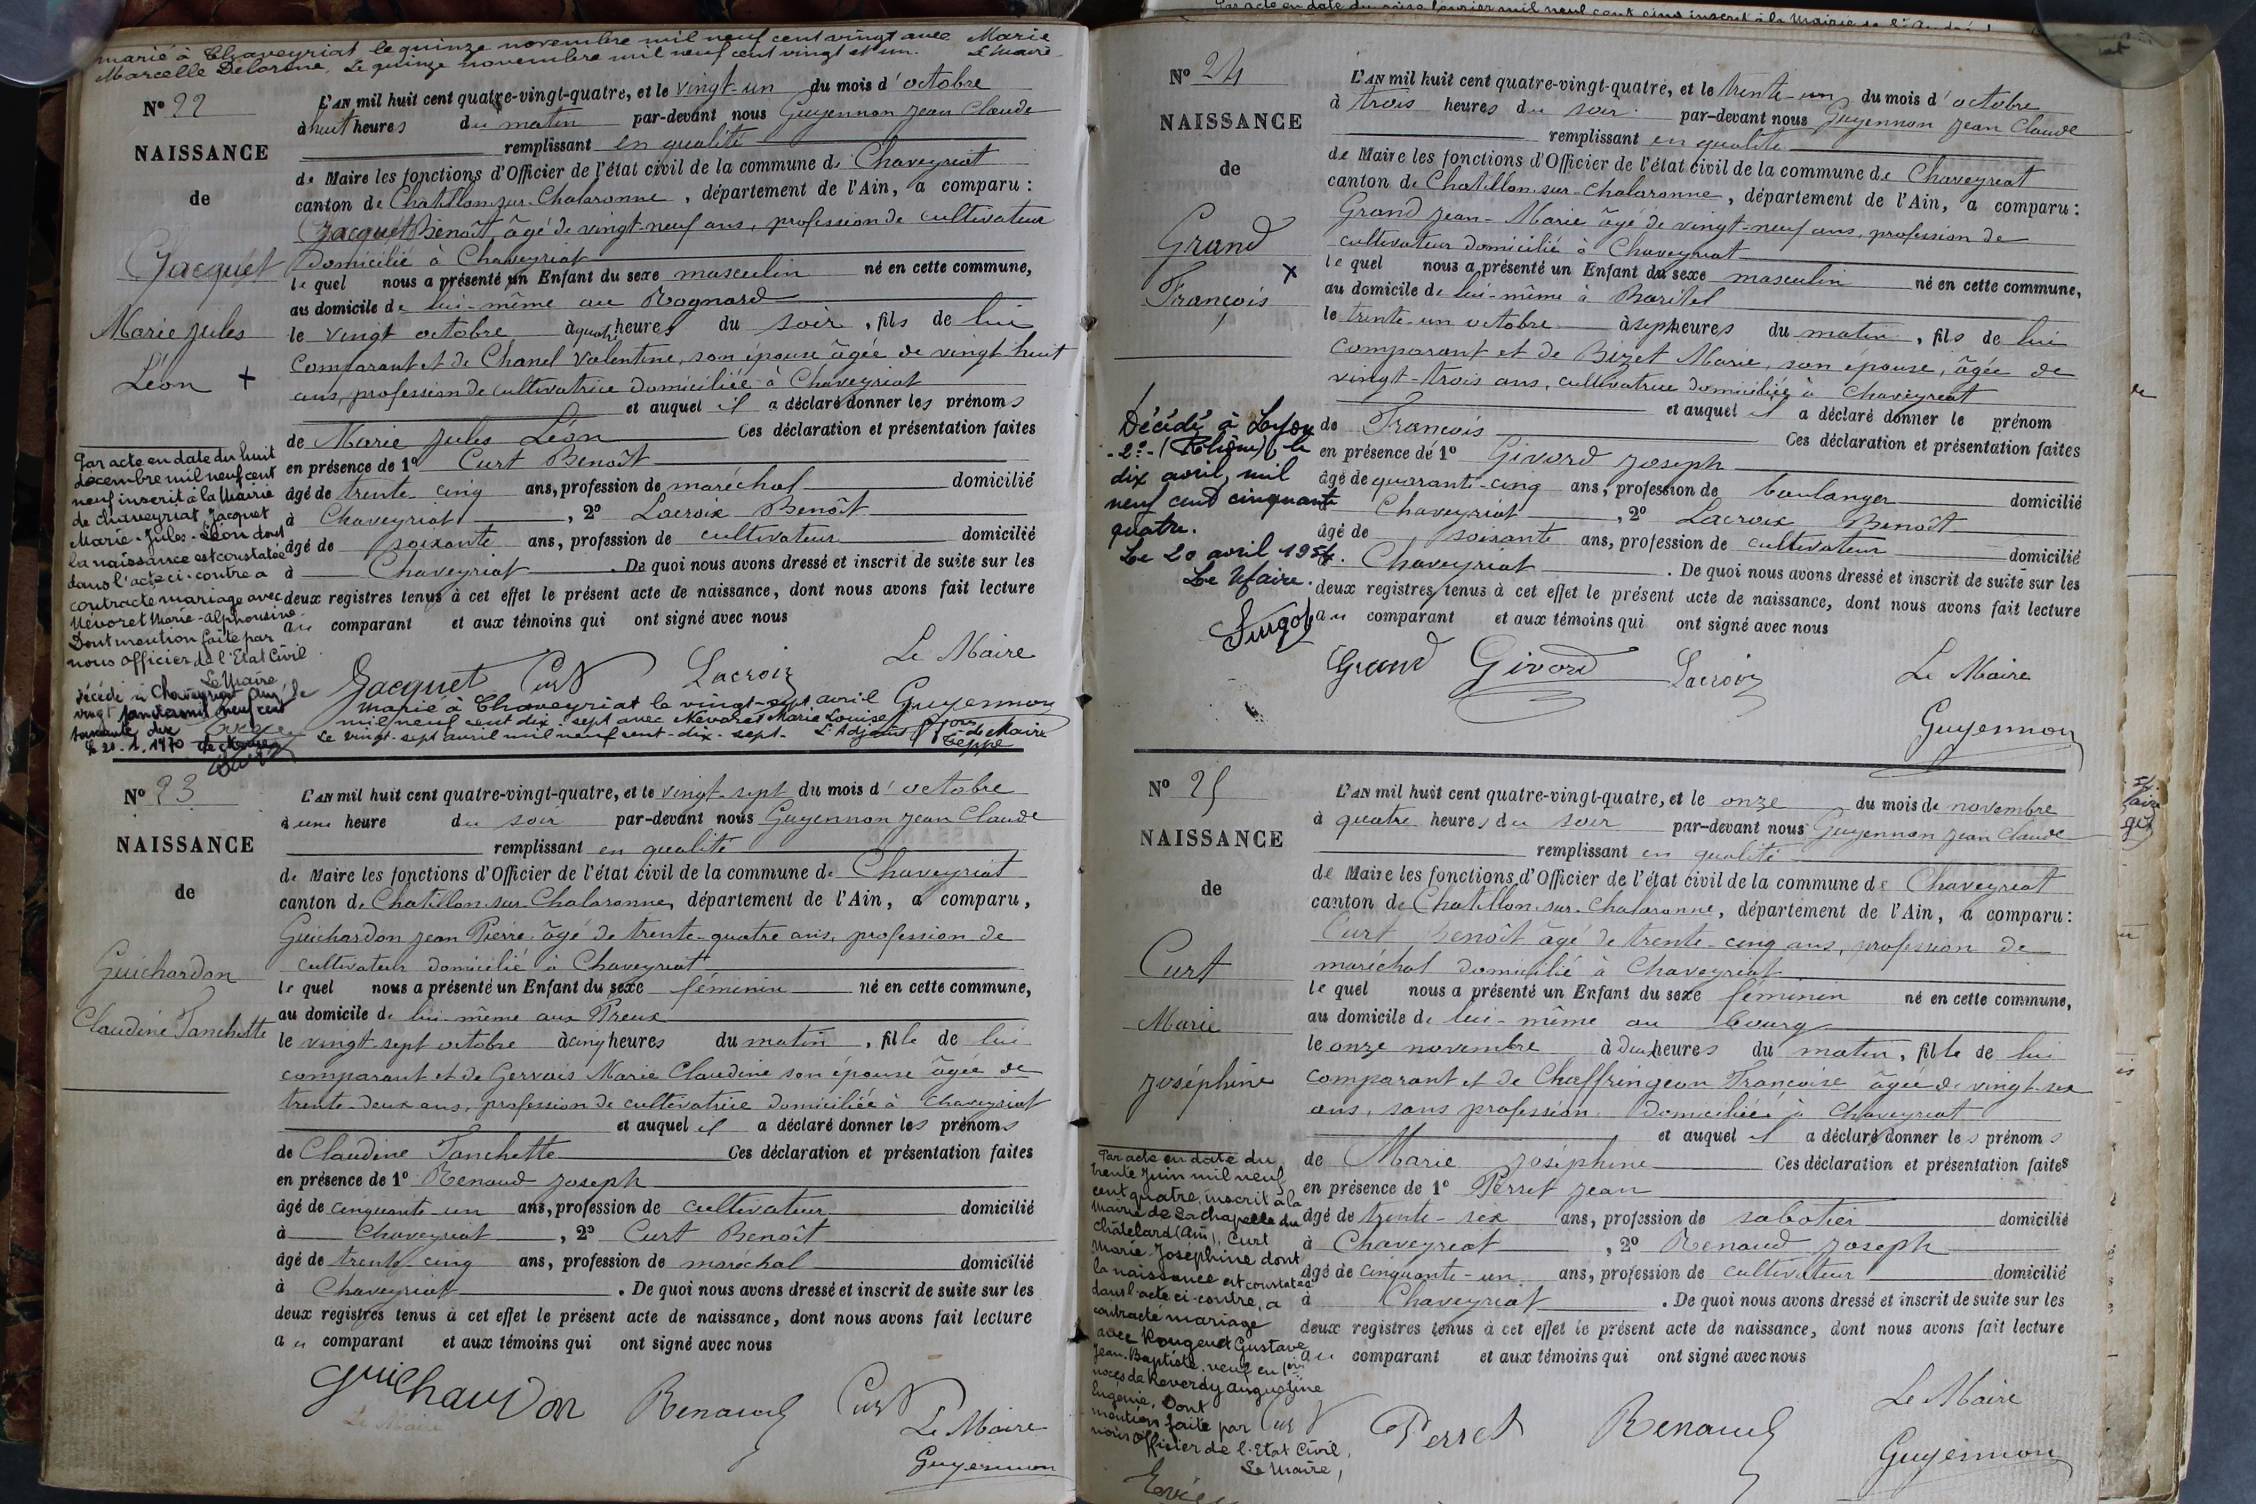 marié à Chaveyriat le quinze novembre mil neuf cent vingt avec Marie
Marcelle Delorme. Le quinze novembre mil neuf cent vingt et un. Le Maire
N° 22
NAISSANCE
de
Jacquet
Marie Jules
Léon +
L'AN mil huit cent quatre-vingt-quatre, et le vingt-un du mois d'octobre
à huit heures du matin par-devant nous Guyennon Jean Claude
remplissant en qualité
de Maire les fonctions d'Officier de l'état civil de la commune de Chaveyriat
canton de Chatillon sur Chalaronne, département de l'Ain, a comparu :
Jacquet Benoît, âgé de vingt-neuf ans, profession de cultivateur
domicilié à Chaveyriat
le quel nous a présenté un Enfant du sexe masculin né en cette commune,
au domicile de lui-même au Rognard
le vingt octobre à quatre heures du soir, fils de lui
comparant et de Chanel Valentine, son épouse âgée de vingt huit
ans, profession de cultivatrice domiciliée à Chaveyriat
et auquel il a déclaré donner les prénoms
de Marie Jules Léon Ces déclaration et présentation faites
en présence de 1° Curt Benoît
âgé de trente-cinq ans, profession de maréchal domicilié
à Chaveyriat, 2° Lacroix Benoît
âgé de soixante ans, profession de cultivateur domicilié
à Chaveyriat. De quoi nous avons dressé et inscrit de suite sur les
deux registres tenus à cet effet le présent acte de naissance, dont nous avons fait lecture
au comparant et aux témoins qui ont signé avec nous
Le Maire
Jacquet Curt Lacroix
Guyennon
marié à Chaveyriat le vingt-sept avril
mil neuf cent dix-sept avec Nevoret Marie Louise
Le vingt-sept avril mil neuf cent-dix-sept. L'Adjoint
Par acte en date du huit
décembre mil neuf cent
neuf inscrit à la Mairie
de Chaveyriat, Jacquet
Marie-Jules-Léon dont
la naissance est constatée
dans l'acte ci-contre a
contracté mariage avec
Névoret Marie-Alphonsine
Dont mention faite par
nous officier de l'Etat Civil
Le Maire
décédé à Chaveyriat Ain, le
vingt janvier mil neuf cent
soixante dix
le 20.1.1970
N° 23
NAISSANCE
de
Guichardon
Claudine Fanchette
L'AN mil huit cent quatre-vingt-quatre, et le vingt-sept du mois d'octobre
à une heure du soir par-devant nous Guyennon Jean Claude
remplissant en qualité
de Maire les fonctions d'Officier de l'état civil de la commune de Chaveyriat
canton de Chatillon sur Chalaronne, département de l'Ain, a comparu,
Guichardon Jean Pierre âgé de trente-quatre ans, profession de
cultivateur domicilié à Chaveyriat
le quel nous a présenté un Enfant du sexe féminin né en cette commune,
au domicile de lui-même aux Preux
le vingt-sept octobre à cinq heures du matin, fille de lui
comparant et de Gervais Marie Claudine son épouse âgée de
trente-deux ans, profession de cultivatrice domiciliée à Chaveyriat
et auquel il a déclaré donner les prénoms
de Claudine Fanchette Ces déclaration et présentation faites
en présence de 1° Renaud Joseph
âgé de cinquante-un ans, profession de cultivateur domicilié
à Chaveyriat, 2° Curt Benoît
âgé de trente-cinq ans, profession de maréchal domicilié
à Chaveyriat. De quoi nous avons dressé et inscrit de suite sur les
deux registres tenus à cet effet le présent acte de naissance, dont nous avons fait lecture
au comparant et aux témoins qui ont signé avec nous
Guichardon Renaud Curt
Le Maire
Guyennon
N° 24
NAISSANCE
de
Grand
François
x
L'AN mil huit cent quatre-vingt-quatre, et le trente-un du mois d'octobre
à trois heures du soir par-devant nous Guyennon Jean Claude
remplissant en qualité
de Maire les fonctions d'Officier de l'état civil de la commune de Chaveyriat
canton de Chatillon-sur-Chalaronne, département de l'Ain, a comparu :
Grand Jean-Marie âgé de vingt-neuf ans, profession de
cultivateur domicilié à Chaveyriat
le quel nous a présenté un Enfant du sexe masculin né en cette commune,
au domicile de lui-même à Baritel
le trente-un octobre à sept heures du matin, fils de lui
comparant et de Bizet Marie, son épouse, âgée de
vingt-trois ans, cultivatrice domiciliée à Chaveyriat
et auquel il a déclaré donner le prénom
de François Ces déclaration et présentation faites
en présence de 1° Givord Joseph
âgé de quarante-cinq ans, profession de boulanger domicilié
Chaveyriat, 2° Lacroix Benoît
âgé de soixante ans, profession de cultivateur domicilié
Chaveyriat. De quoi nous avons dressé et inscrit de suite sur les
deux registres tenus à cet effet le présent acte de naissance, dont nous avons fait lecture
au comparant et aux témoins qui ont signé avec nous
Grand Givord Lacroix
Le Maire
Guyennon
Décédé à Lyon
-2e- (Rhône), le
dix avril, mil
neuf cent cinquante
quatre.
Le 20 avril 1954.
Le Maire.
N° 25
NAISSANCE
de
Curt
Marie
Joséphine
L'AN mil huit cent quatre-vingt-quatre, et le onze du mois de novembre
à quatre heures du soir par-devant nous Guyennon Jean Claude
remplissant en qualité
de Maire les fonctions d'Officier de l'état civil de la commune de Chaveyriat
canton de Chatillon-sur-Chalaronne, département de l'Ain, a comparu :
Curt Benoît âgé de trente-cinq ans, profession de
maréchal domicilié à Chaveyriat
le quel nous a présenté un Enfant du sexe féminin né en cette commune,
au domicile de lui-même au bourg
le onze novembre à deux heures du matin, fille de lui
comparant et de Chaffringeon Françoise âgée de vingt-six
ans, sans profession domiciliée à Chaveyriat
et auquel il a déclaré donner les prénoms
de Marie Joséphine Ces déclaration et présentation faites
en présence de 1° Perret Jean
âgé de trente-six ans, profession de sabotier domicilié
à Chaveyriat, 2° Renaud Joseph
âgé de cinquante-un ans, profession de cultivateur domicilié
à Chaveyriat. De quoi nous avons dressé et inscrit de suite sur les
deux registres tenus à cet effet le présent acte de naissance, dont nous avons fait lecture
au comparant et aux témoins qui ont signé avec nous
Curt Perret Renaud
Le Maire
Guyennon
Par acte en date du
trente Juin mil neuf
cent quatre, inscrit à la
Mairie de La Chapelle du
Châtelard (Ain), Curt
Marie-Joséphine dont
la naissance est constatée
dans l'acte ci-contre, a
contracté mariage
avec Rougeot Gustave
Jean-Baptiste, veuf en 1ères
noces de Reverdy Augustine
Eugénie. Dont
mention faite par
nous officier de l'Etat Civil,
Le Maire,